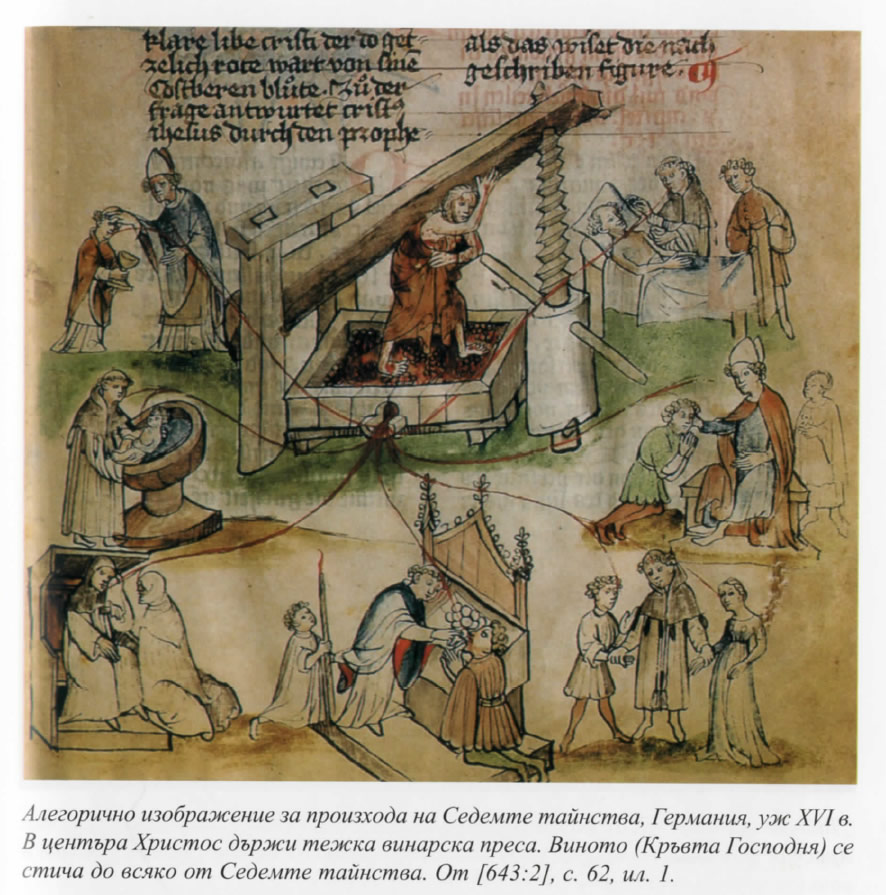 klare libe cristi der do get=
zelich rote wart von sine
Costberen blůte. Zů der
frage antwurtet crist9
ihesus durch den prophe=
als das wiset die nach
geschriben figure.
Алегорично изображение за произхода на Седемте тайнства, Германия, уж XVI в.
В центъра Христос държи тежка винарска преса. Виното (Кръвта Господня) се
стича до всяко от Седемте тайнства. От [643:2], с. 62, ил. 1.